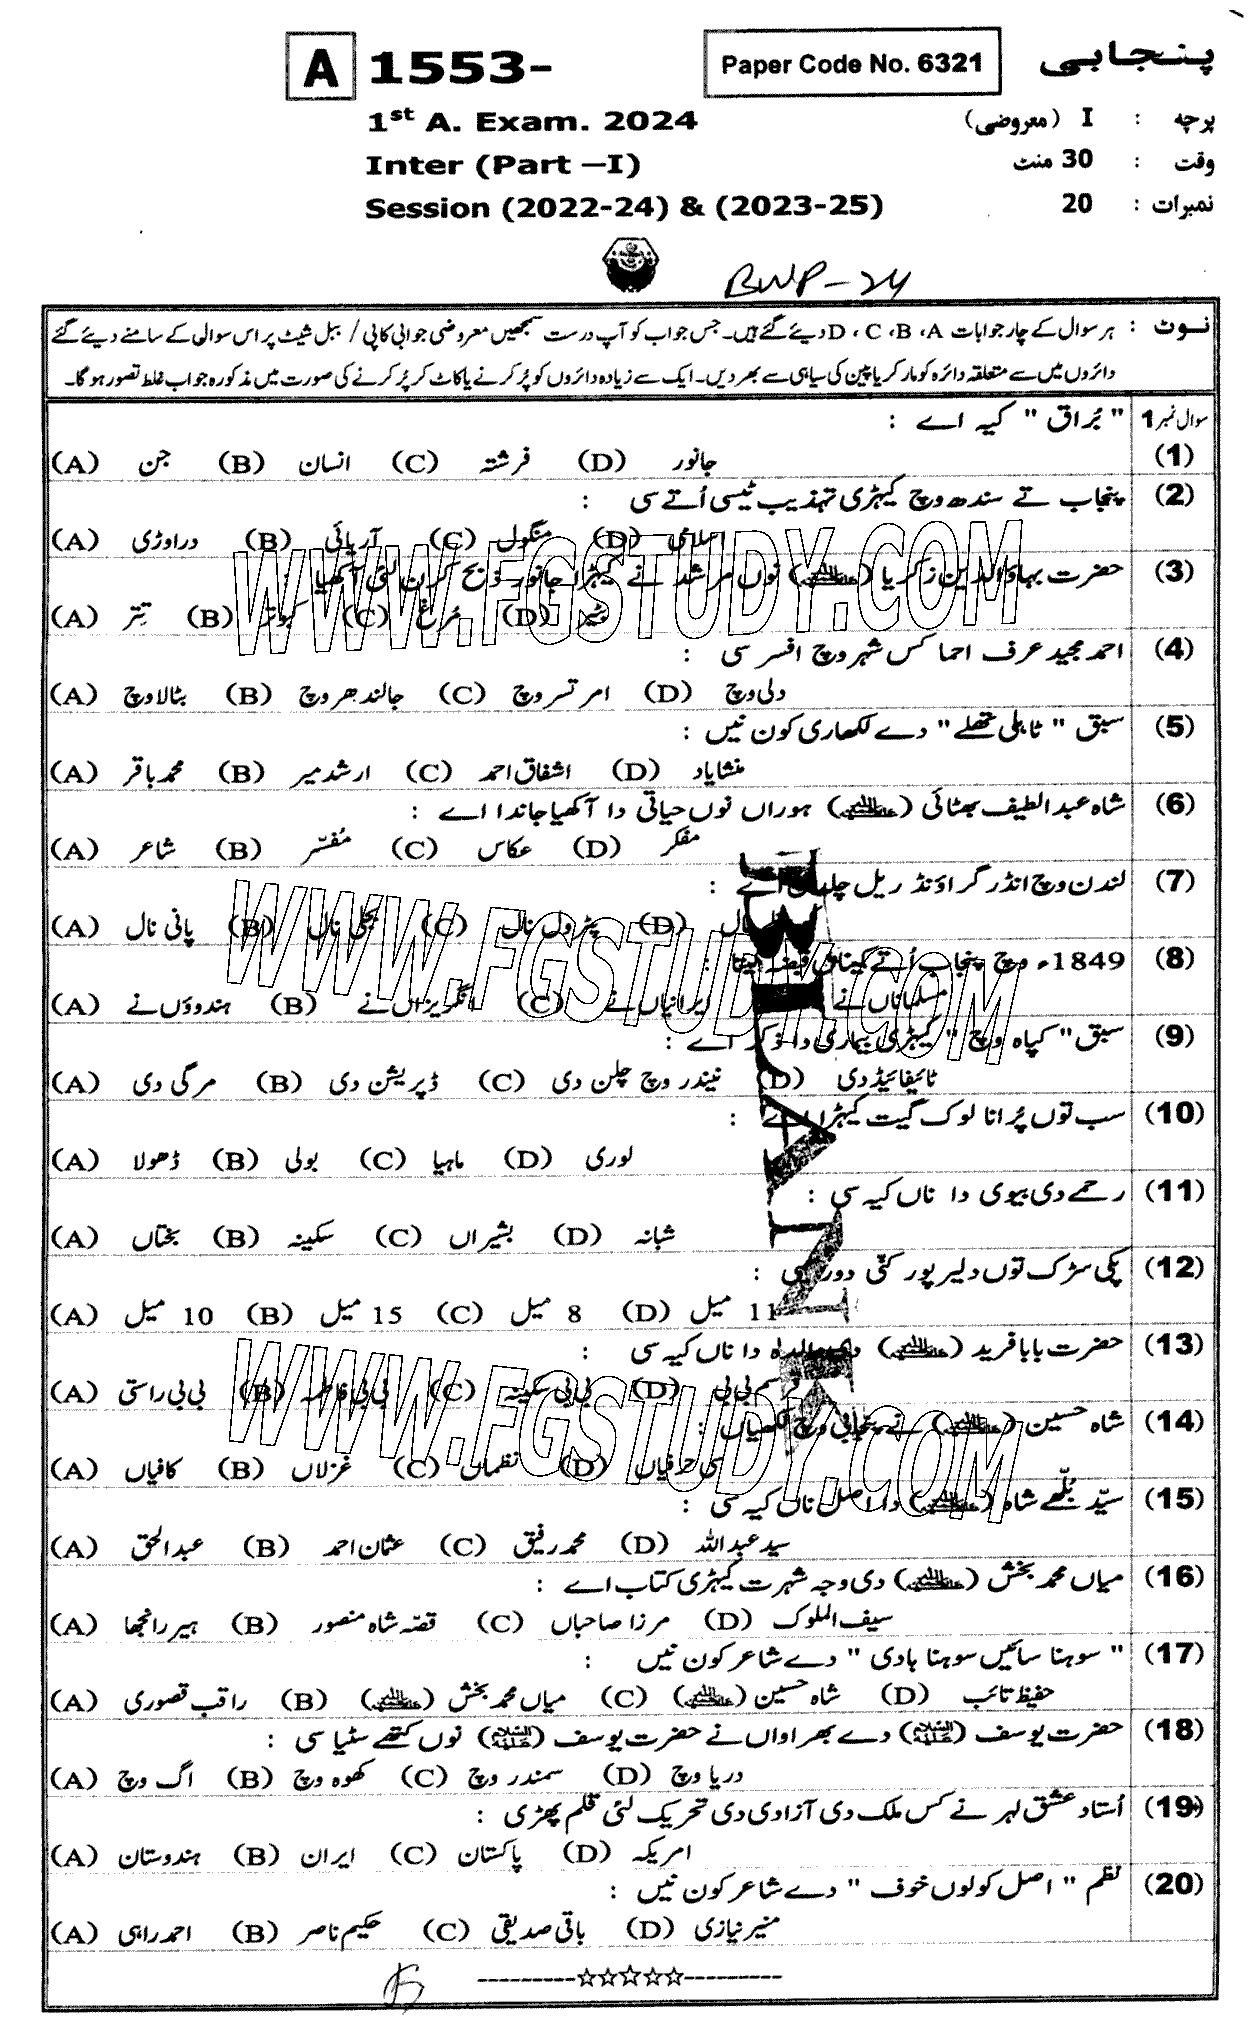 A 1553- Paper Code No. 6321 پنجابی
1st A. Exam. 2024 پرچہ : I (معروضی)
Inter (Part –I) وقت : 30 منٹ
Session (2022-24) & (2023-25) نمبرات : 20
BWP-24
نوٹ : ہر سوال کے چار جوابات A، B، C، D دیئے گئے ہیں۔ جس جواب کو آپ درست سمجھیں معروضی جوابی کاپی / ببل شیٹ پر اس سوال کے سامنے دیئے گئے
دائروں میں سے متعلقہ دائرہ کو مارکر یا پین کی سیاہی سے بھر دیں۔ ایک سے زیادہ دائروں کو پُر کرنے یا کاٹ کر پُر کرنے کی صورت میں مذکورہ جواب غلط تصور ہو گا۔
سوال نمبر 1 " بُراق " کیہ اے :
(1) (A) جن (B) انسان (C) فرشتہ (D) جانور
(2) پنجاب تے سندھ وچ کیہڑی تہذیب ٹیسی اُتے سی :
(A) دراوڑی (B) آریائی (C) منگول (D) اسلامی
(3) حضرت بہاؤالدین زکریا (رحمۃ اللہ علیہ) نوں مرشد نے کیہڑا جانور ذبح کرن لئی آکھیا :
(A) تِتر (B) کبوتر (C) مُرغ (D) بٹیر
(4) احمد مجید عرف احما کس شہر وچ افسر سی :
(A) بٹالا وچ (B) جالندھر وچ (C) امرتسر وچ (D) دلی وچ
(5) سبق " ٹاہلی تھلے " دے لکھاری کون نیں :
(A) محمد باقر (B) ارشد میر (C) اشفاق احمد (D) منشا یاد
(6) شاہ عبد الطیف بھٹائی (رحمۃ اللہ علیہ) ہوراں نوں حیاتی دا آکھیا جاندا اے :
(A) شاعر (B) مُفسّر (C) عکاس (D) مفکر
(7) لندن وچ انڈر گراؤنڈ ریل چلدی اے :
(A) پانی نال (B) بجلی نال (C) پٹرول نال (D) نال
(8) 1849ء وچ پنجاب اُتے کیہناں قبضہ کیتا :
(A) ہندوؤں نے (B) انگریزاں نے (C) ایرانیاں نے (D) مسلماناں نے
(9) سبق " کپاہ وچ " کیہڑی بیماری دا ذکر اے :
(A) مرگی دی (B) ڈپریشن دی (C) نیندر وچ چلن دی (D) ٹائیفائیڈ دی
(10) سب توں پُرانا لوک گیت کیہڑا اے :
(A) ڈھولا (B) بولی (C) ماہیا (D) لوری
(11) رحمے دی بیوی دا ناں کیہ سی :
(A) بختاں (B) سکینہ (C) بشیراں (D) شبانہ
(12) پکی سڑک توں دلیر پور کنّی دور سی :
(A) 10 میل (B) 15 میل (C) 8 میل (D) 11 میل
(13) حضرت بابا فرید (رحمۃ اللہ علیہ) دی والدہ دا ناں کیہ سی :
(A) بی بی راستی (B) بی بی فاطمہ (C) بی بی سکینہ (D) بی بی
(14) شاہ حسین (رحمۃ اللہ علیہ) نے پنجابی وچ لکھیاں :
(A) کافیاں (B) غزلاں (C) نظماں (D) سی حرفیاں
(15) سیّد بُلّھے شاہ (رحمۃ اللہ علیہ) دا اصل ناں کیہ سی :
(A) عبدالحق (B) عثمان احمد (C) محمد رفیق (D) سید عبداللہ
(16) میاں محمد بخش (رحمۃ اللہ علیہ) دی وجہ شہرت کیہڑی کتاب اے :
(A) ہیر رانجھا (B) قصّہ شاہ منصور (C) مرزا صاحباں (D) سیف الملوک
(17) " سوہنا سائیں سوہنا ہادی " دے شاعر کون نیں :
(A) راقب قصوری (B) میاں محمد بخش (رحمۃ اللہ علیہ) (C) شاہ حسین (رحمۃ اللہ علیہ) (D) حفیظ تائب
(18) حضرت یوسف (علیہ السلام) دے بھراواں نے حضرت یوسف (علیہ السلام) نوں کتھے سٹیا سی :
(A) اگ وچ (B) کھوہ وچ (C) سمندر وچ (D) دریا وچ
(19) اُستاد عشق لہر نے کس ملک دی آزادی دی تحریک لئی قلم پھڑی :
(A) ہندوستان (B) ایران (C) پاکستان (D) امریکہ
(20) نظم " اصل کولوں خوف " دے شاعر کون نیں :
(A) احمد راہی (B) حکیم ناصر (C) باقی صدیقی (D) منیر نیازی
---------☆☆☆☆☆---------
WWW.FGSTUDY.COM
WWW.FGSTUDY.COM
WWW.FGSTUDY.COM